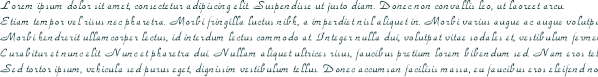 Lorem ipsum dolor sit amet, consectetur adipiscing elit. Suspendisse ut justo diam. Donec non convallis leo, ut laoreet arcu.
Etiam tempor vel risus nec pharetra. Morbi fringilla luctus nibh, a imperdiet nisl aliquet in. Morbi varius augue ac augue volutpa
Morbi hendrerit ullamcorper lectus, id interdum lectus commodo at. Integer nulla dui, volutpat vitae sodales et, vestibulum ferme
Curabitur et nunc elit. Nunc et pharetra dui. Nullam aliquet ultrices risus, faucibus pretium lorem bibendum sed. Nam eros tel
Sed tortor ipsum, vehicula sed purus eget, dignissim vestibulum tellus. Donec accumsan facilisis massa, eu faucibus eros eleifend no